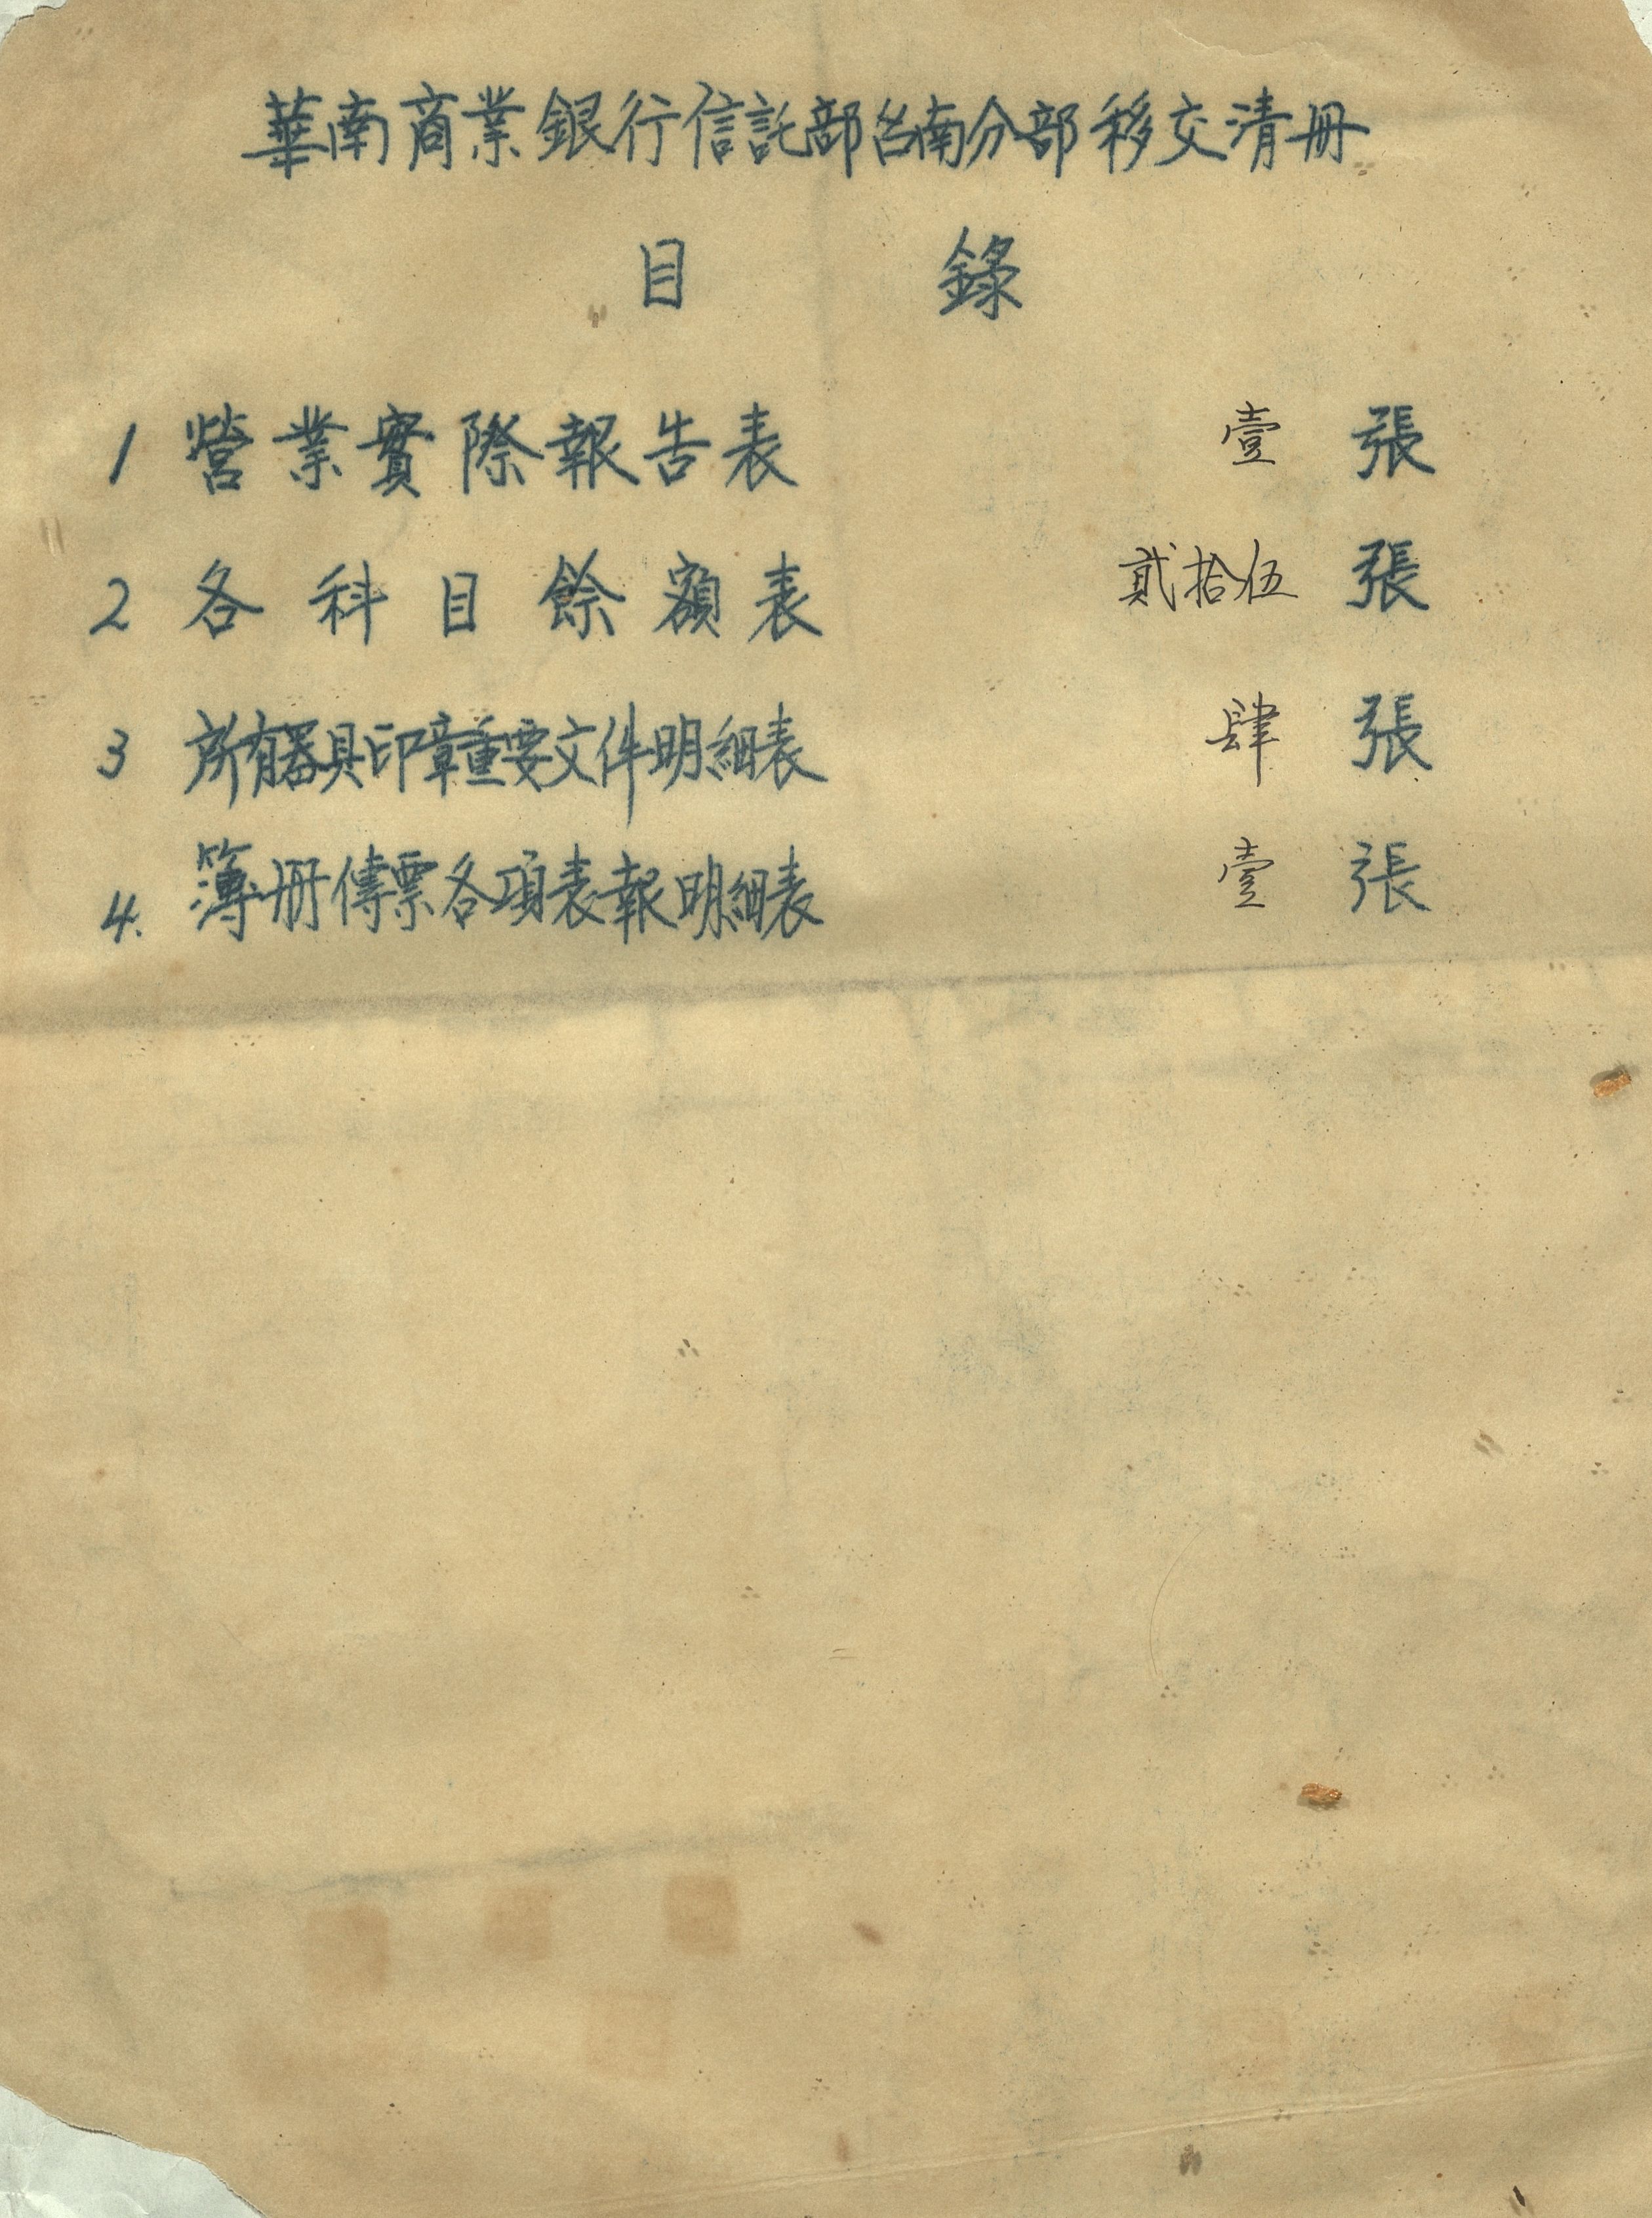 華南商業銀行信託部台南分部移交清冊
目錄
1 營業實際報告表 壹張
2 各科目餘額表 貳拾伍張
3 所有器具印章重要文件明細表 肆張
4. 簿冊傳票各項表報明細表 壹張